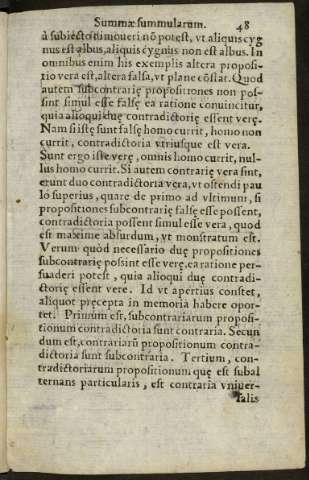 Summæ summularum. 48
à subiecto dimoueri nõ potest, vt aliquis cyg
nus est albus, aliquis cygnus non est albus. In
omnibus enim his exemplis altera proposi-
tio vera est, altera falsa, vt plane cõstat. Quod
autem subcontrarię propositiones non pos-
sint simul esse falsę ea ratione conuincitur,
quia alioqui duę contradictorię essent verę.
Nam si istę sunt falsę homo currit, homo non
currit, contradictoria vtriusque est vera.
Sunt ergo istę verę, omnis homo currit, nul-
lus homo currit. Si autem contrarię vera sint,
erunt duo contradictoria vera, vt ostendi pau
ló superius, quare de primo ad vltimum, si
propositiones subcontrarię falsę esse possent,
contradictoria possent simul esse vera, quod
est maxime absurdum, vt monstratum est.
Verum quòd necessario duę propositiones
subcontrarię possint esse verę, ea ratione per-
suaderi potest, quia alioqui duę contradi-
ctorię essent vere. Id vt apertius constet,
aliquot pręcepta in memoria habere opor-
tet. Primum est, subcontrariarum proposi-
tionum contradictoria sunt contraria. Secun
dum est, contrariarũ propositionum contra-
dictoria sunt subcontraria. Tertium, con-
tradictoriarum propositionum quę est subal
ternans particularis, est contraria vniuer-
salis